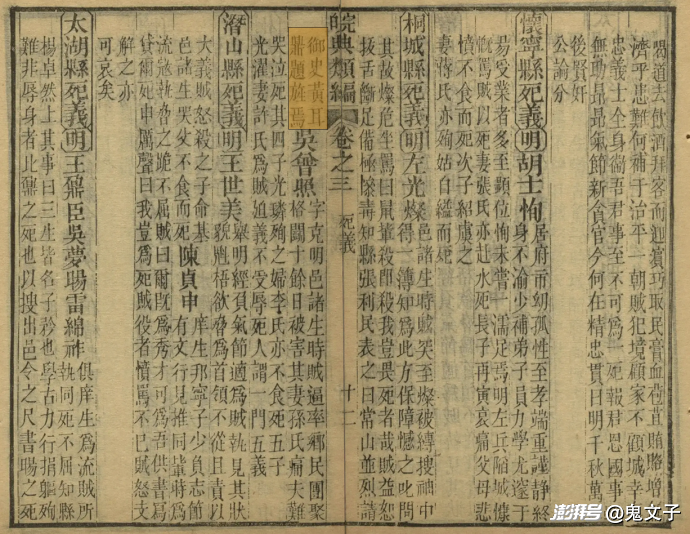 喝道去飲酒拜客而迎賓巧取民膏血苞苴賄賂增
濟乎患難何補于治平一朝賊犯境顧家不顧城幸
忠義士全身衛吾君事至不可爲一死報君恩國事
無動昂昂氣節新食官今何在精忠貫日明千秋萬
後賢奸
公論分
懷寧縣死義明胡士恂居府市幼孤性至孝端重謹靜終
身不渝少補弟子員力學尤邃于
易受業者多至顯位恂未嘗一濡足焉明左兵陷城
慨罵賊以死妻張氏亦赴水死長子再寅哀痛父母悲
憤不食而死次子紹虞之
妻蔣氏亦殉姑自縊而死
桐城縣死義明左光燦邑諸生時賊突至燦被縛搜袖中
得一簿知爲此方保障憾之叱問
其故燦危坐罵曰鼠輩殺即殺我豈畏死者哉賊益恕
拔舌斷足備極慘毒知縣張利民表之曰當山並烈請
皖典類編 卷之三 死義 十二
御史黃耳
鼎題旌焉
吳曾照字克明邑諸生時賊逼率鄉民團聚
格鬭十餘日被害其妻孫氏痛夫難
哭泣死其四子光璘殉之婦李氏亦不食死五子
光濯妻許氏爲賊迫義不受辱死人謂一門五義
潛山縣死義明王世美舉明經負氣節適爲賊執見其狀
貌魁梧欲脅爲首領不從且責以
大義賊怒殺之子命基
邑諸生哭父不食而死
陳貞申庠生邢寧子少負志節
有文行見推同輩時爲
流寇執脅之跪不屈賊曰爾爲秀才可爲吾供書寫
貸爾死申厲聲曰我豈爲死賊役者憤罵不已賊怒支
解之亦
可哀矣
太湖縣死義明王鼐臣吳夢暘雷綿祚俱庠生爲流賊所
執同死不屈知縣
楊卓然上其事曰三生皆名子衿也學古力行捐軀殉
難非辱身者北鼐之死也以搜出邑令之尺書暘之死
澎湃号@鬼文子